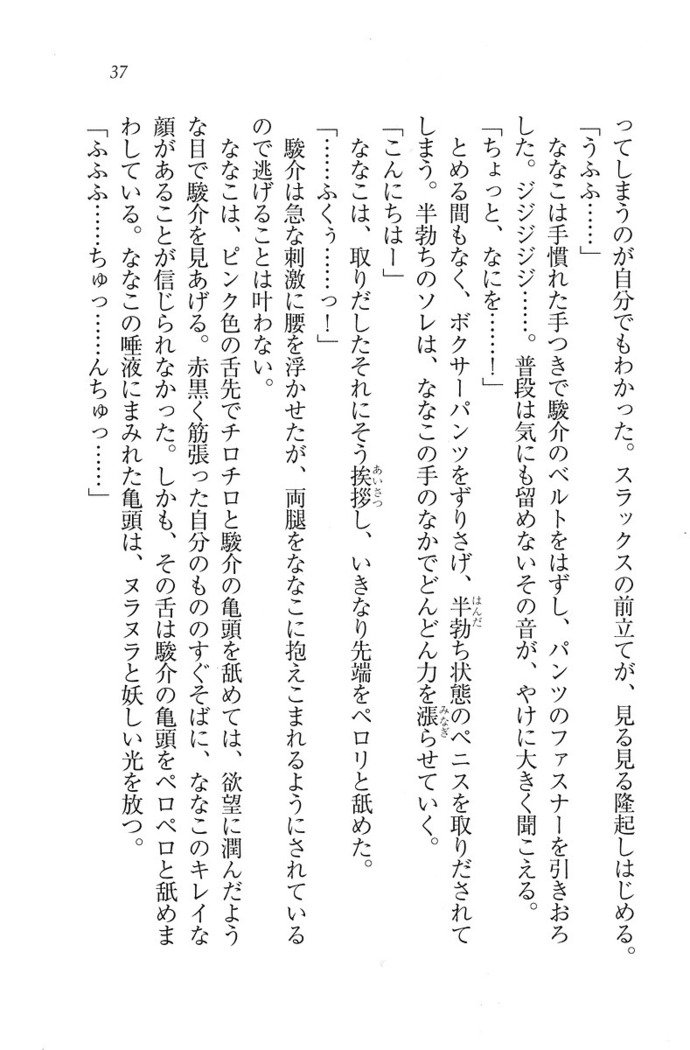 37
ってしまうのが自分でもわかった。スラックスの前立てが、見る見る隆起しはじめる。
「うふふ……」
ななこは手慣れた手つきで駿介のベルトをはずし、パンツのファスナーを引きおろ
した。ジジジジジ……。普段は気にも留めないその音が、やけに大きく聞こえる。
「ちょっと、なにを……！」
とめる間もなく、ボクサーパンツをずりさげ、半勃ち状態のペニスを取りだされて
しまう。半勃ちのソレは、ななこの手のなかでどんどん力を漲らせていく。
「こんにちはー」
ななこは、取りだしたそれにそう挨拶し、いきなり先端をペロリと舐めた。
「……ふくぅ……っ！」
駿介は急な刺激に腰を浮かせたが、両腿をななこに抱えこまれるようにされている
ので逃げることは叶わない。
ななこは、ピンク色の舌先でチロチロと駿介の亀頭を舐めては、欲望に潤んだよう
な目で駿介を見あげる。赤黒く筋張った自分のもののすぐそばに、ななこのキレイな
顔があることが信じられなかった。しかも、その舌は駿介の亀頭をペロペロと舐めま
わしている。ななこの唾液にまみれた亀頭は、ヌラヌラと妖しい光を放つ。
「ふふふ……ちゅっ……んちゅっ……」